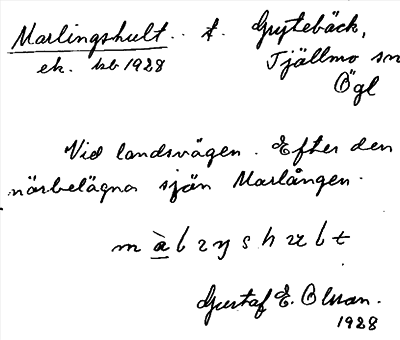 Marlingshult. t. Grytebäck,
ek. kb 1928 Tjällmo sn
Ögl
Vid landsvägen. Efter den
närbelägna sjön Marlången.
Gustaf E. Olsson.
1928